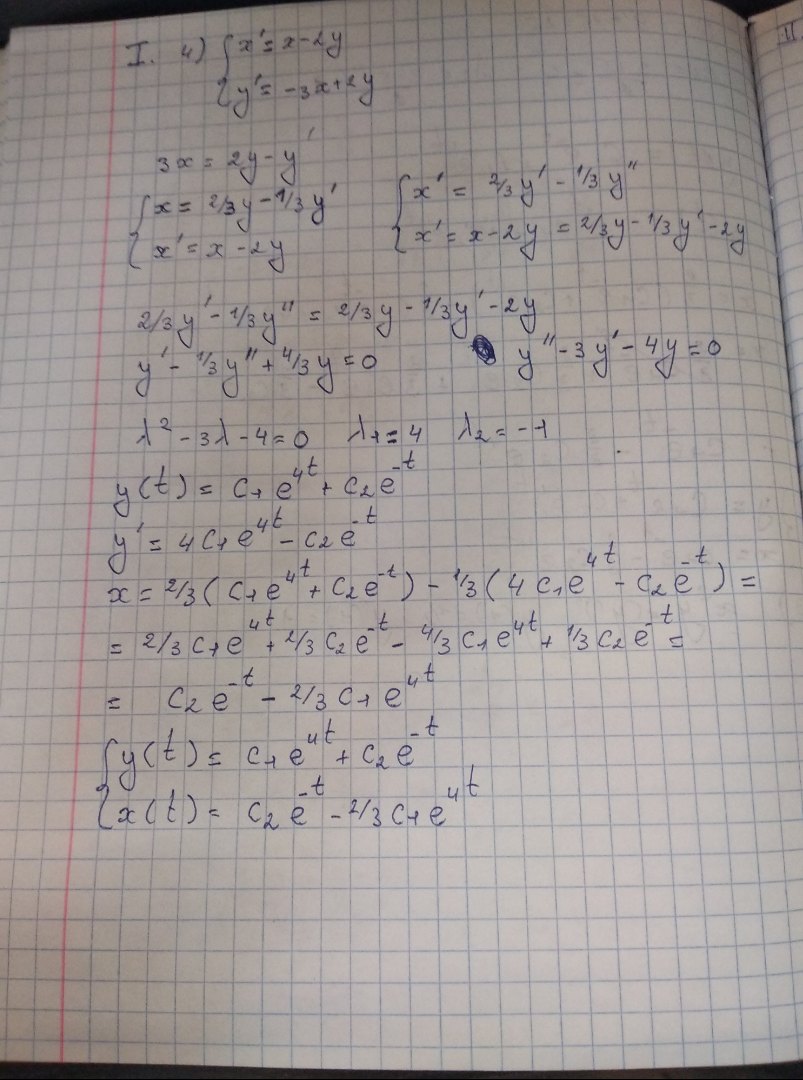 I. 4) { x' = x - 2y
{ y' = -3x + 2y
3x = 2y - y'
{ x = 2/3y - 1/3y' { x' = 2/3y' - 1/3y''
{ x' = x - 2y { x' = x - 2y = 2/3y - 1/3y' - 2y
2/3y' - 1/3y'' = 2/3y - 1/3y' - 2y
y' - 1/3y'' + 4/3y = 0 y'' - 3y' - 4y = 0
λ² - 3λ - 4 = 0 λ₁ = 4 λ₂ = -1
y(t) = C₁e^{4t} + C₂e^{-t}
y' = 4C₁e^{4t} - C₂e^{-t}
x = 2/3(C₁e^{4t} + C₂e^{-t}) - 1/3(4C₁e^{4t} - C₂e^{-t}) =
= 2/3C₁e^{4t} + 2/3C₂e^{-t} - 4/3C₁e^{4t} + 1/3C₂e^{-t} =
= C₂e^{-t} - 2/3C₁e^{4t}
{ y(t) = C₁e^{4t} + C₂e^{-t}
{ x(t) = C₂e^{-t} - 2/3C₁e^{4t}